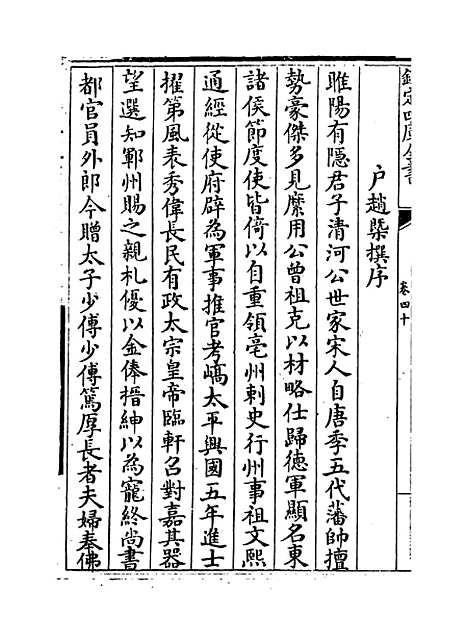 欽定四庫全書
卷四十
户趙槩撰序
睢陽有隱君子清河公世家宋人自唐季五代藩帥擅
勢豪傑多見縻用公曾祖克以材略仕歸徳軍顯名東
諸侯節度使皆倚以自重領亳州刺史行州事祖文熙
通經從使府辟為軍事推官考嶠太平興國五年進士
擢第風表秀偉長民有政太宗皇帝臨軒召對嘉其器
望選知鄆州賜之親札優以金俸搢紳以為寵終尚書
都官員外郎今贈太子少傅少傅篤厚長者夫婦奉佛